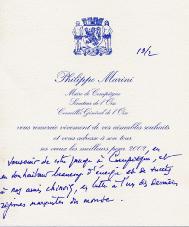 13/2
Philippe Marini
Maire de Compiègne
Sénateur de l'Oise
Conseiller Général de l'Oise
vous remercie vivement de vos aimables souhaits
et vous adresse à son tour
ses vœux les meilleurs pour 2002, en
souvenir de votre passage à Compiègne, et
en souhaitant beaucoup d'énergie et de succès
à nos amis chinois, en lutte à l'un des derniers
régimes marxistes du monde.